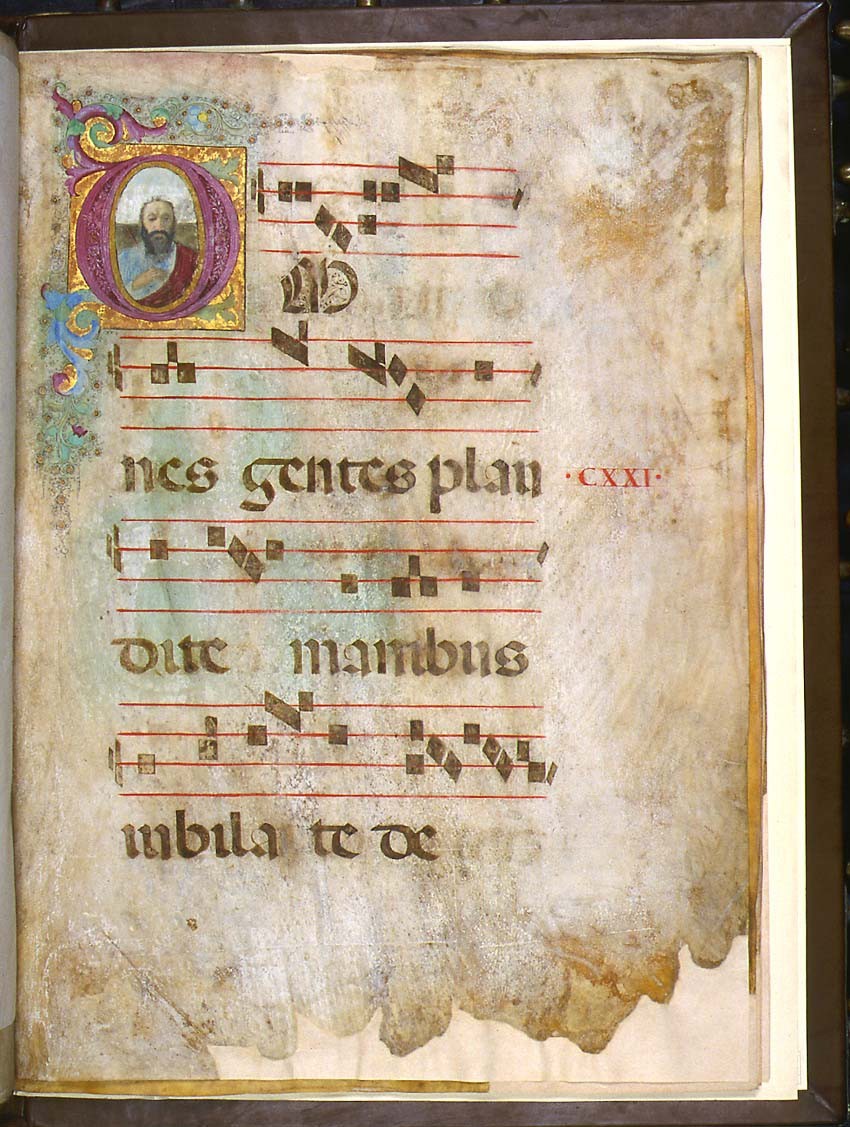 OM
nes gentes plau
·CXXI·
dite manibus
iubila te de